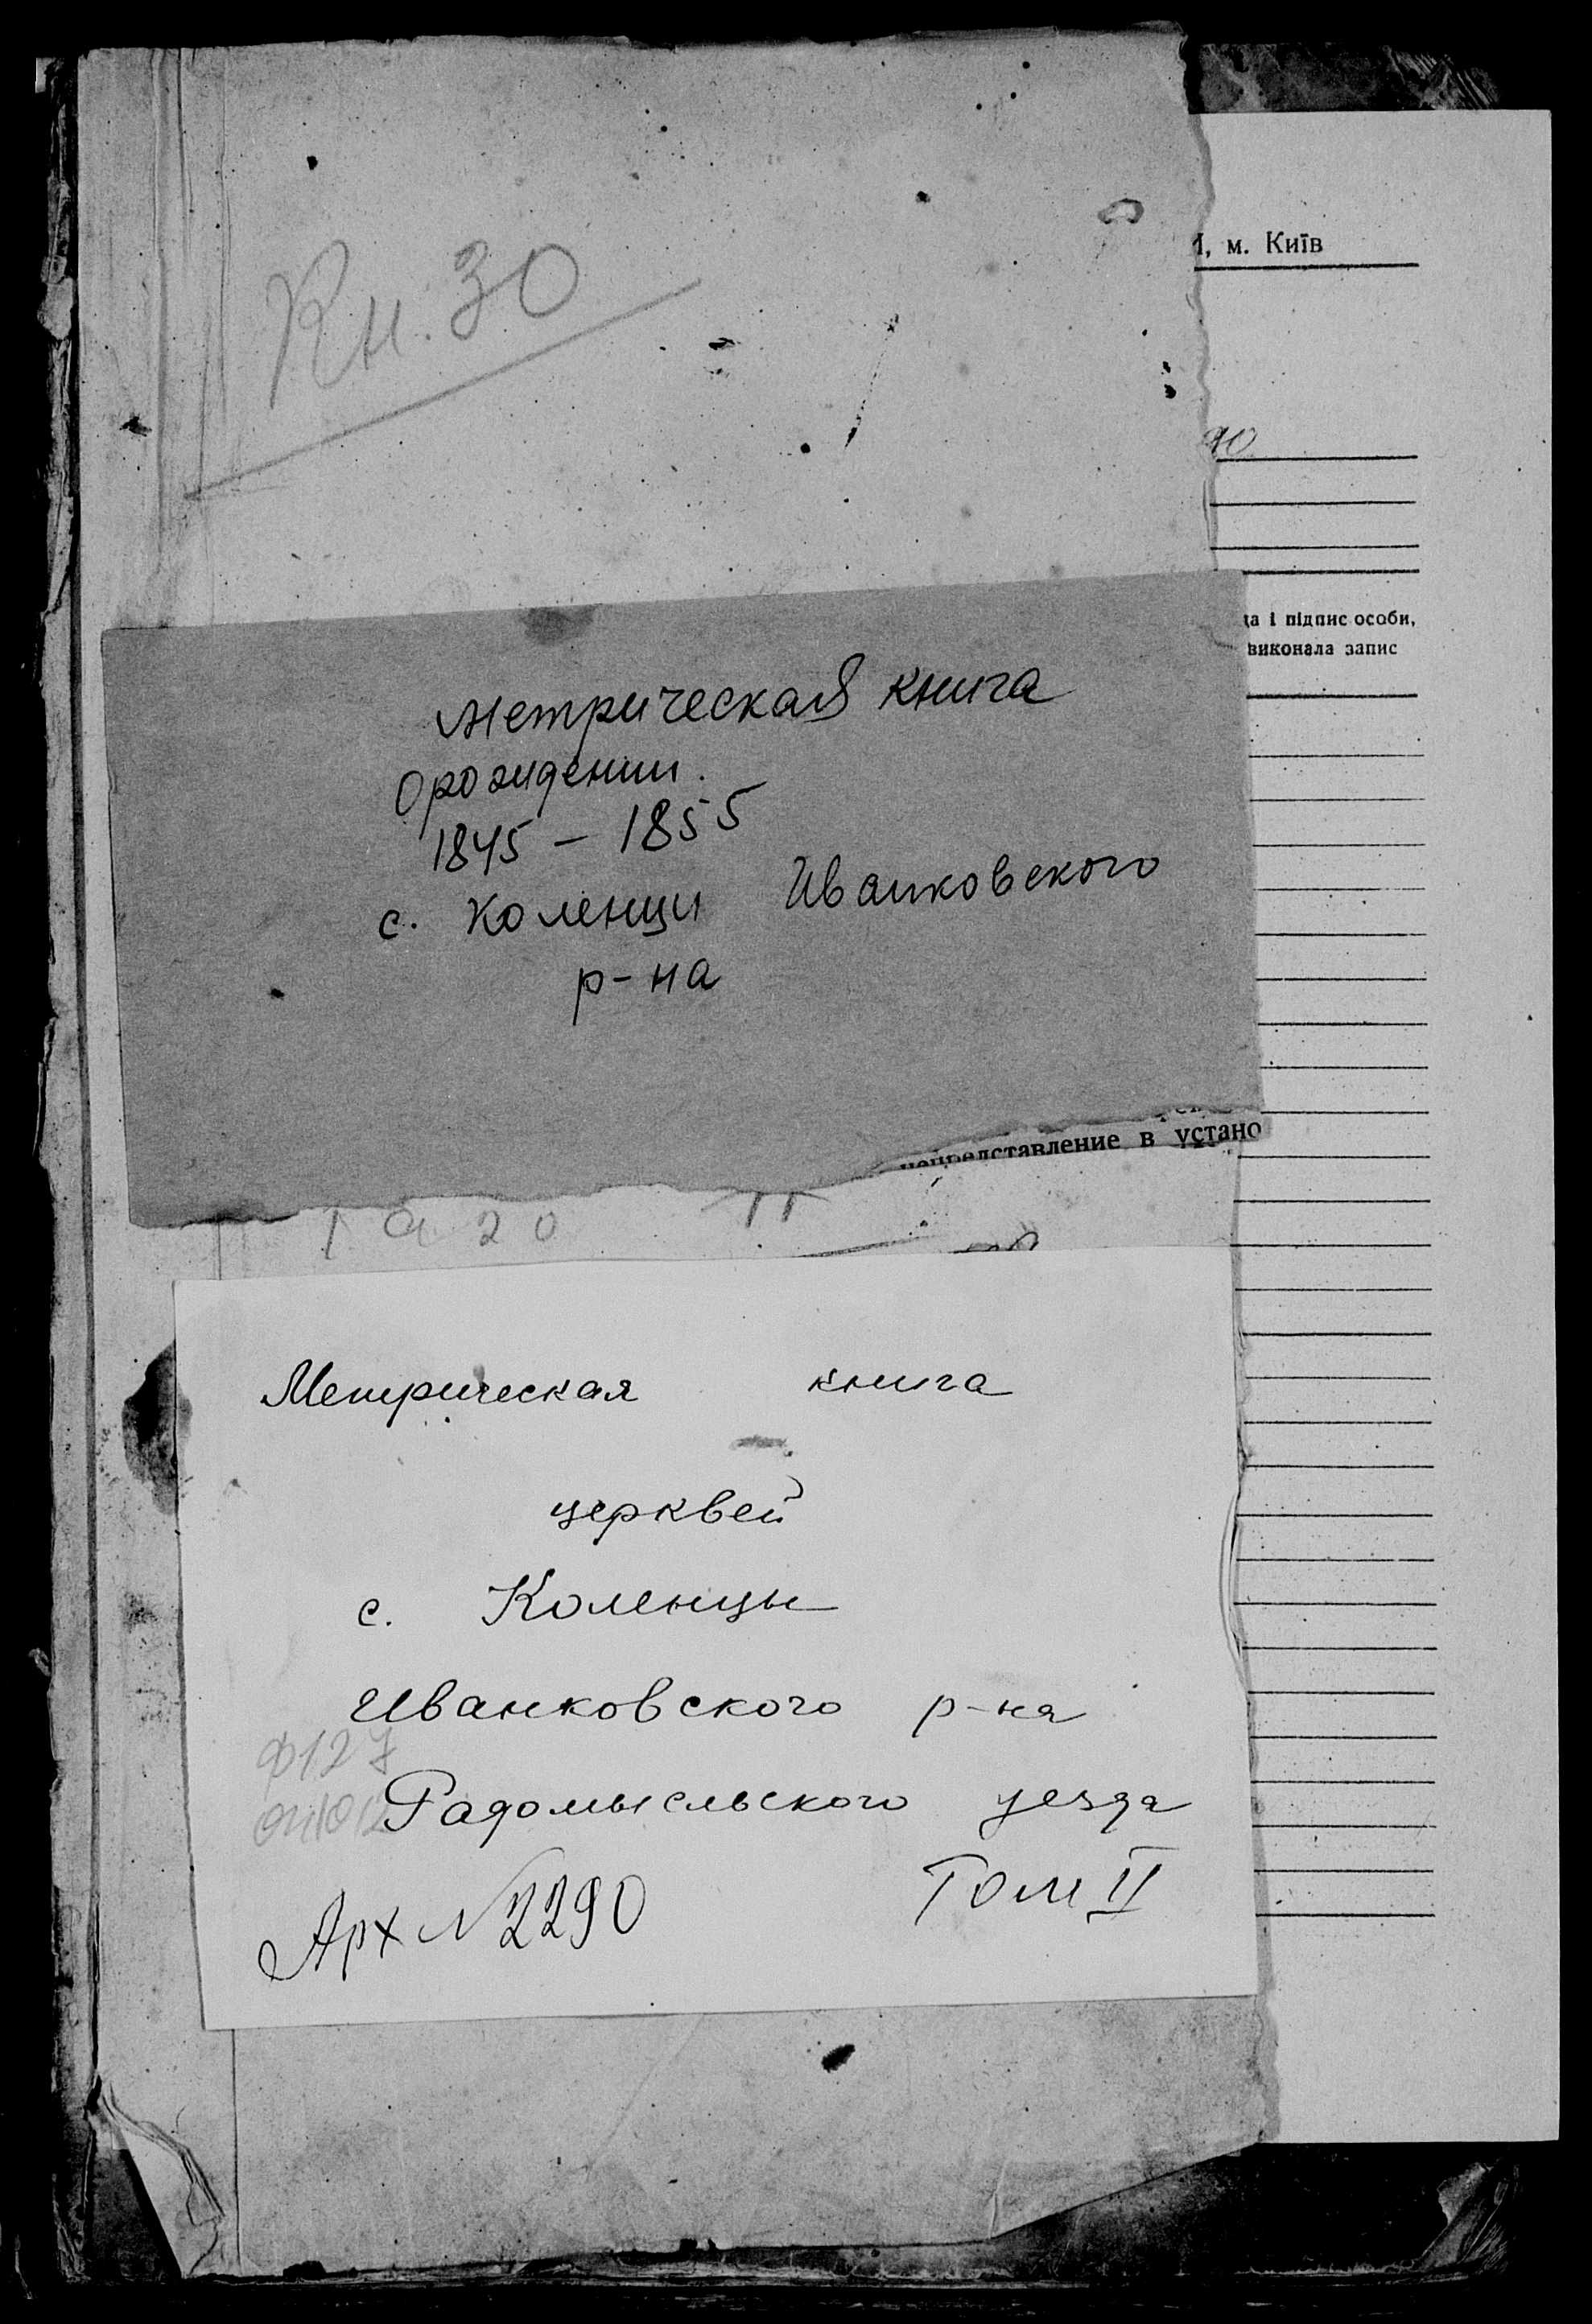 Кн. 30
, м. Київ
90
і підпис особи,
виконала запис
Метрическая книга
о рождении.
1845 – 1855
с. Коленци Иванковского
р-на
непредставление в устано
Метрическая книга
церквей
с. Коленцы
Иванковского р-на
Ф127
Радомысльского уезда
Арх № 2290 Том II